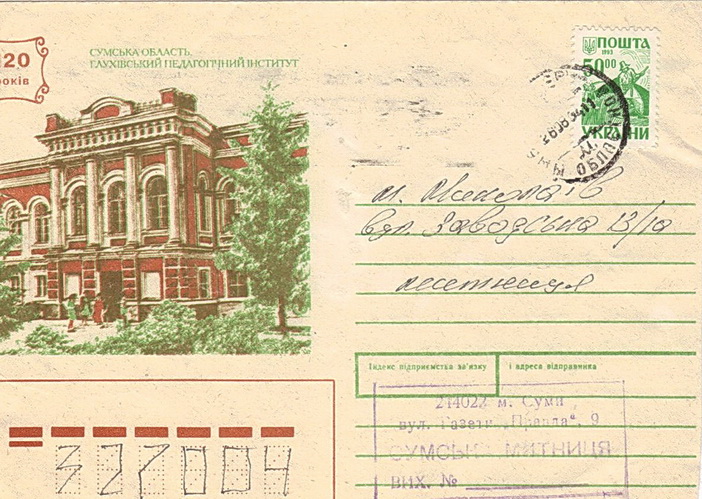 120
років
СУМСЬКА ОБЛАСТЬ.
ГЛУХІВСЬКИЙ ПЕДАГОГІЧНИЙ ІНСТИТУТ
ПОШТА
1993
50 00
УКРАЇНИ
м. Миколаїв
вул. Заводська 13/1а
Індекс підприємства зв'язку і адреса відправника
214022 м. Суми
вул. Газети „Правда", 9
СУМСЬКА МИТНИЦЯ
ВИХ. №
327004